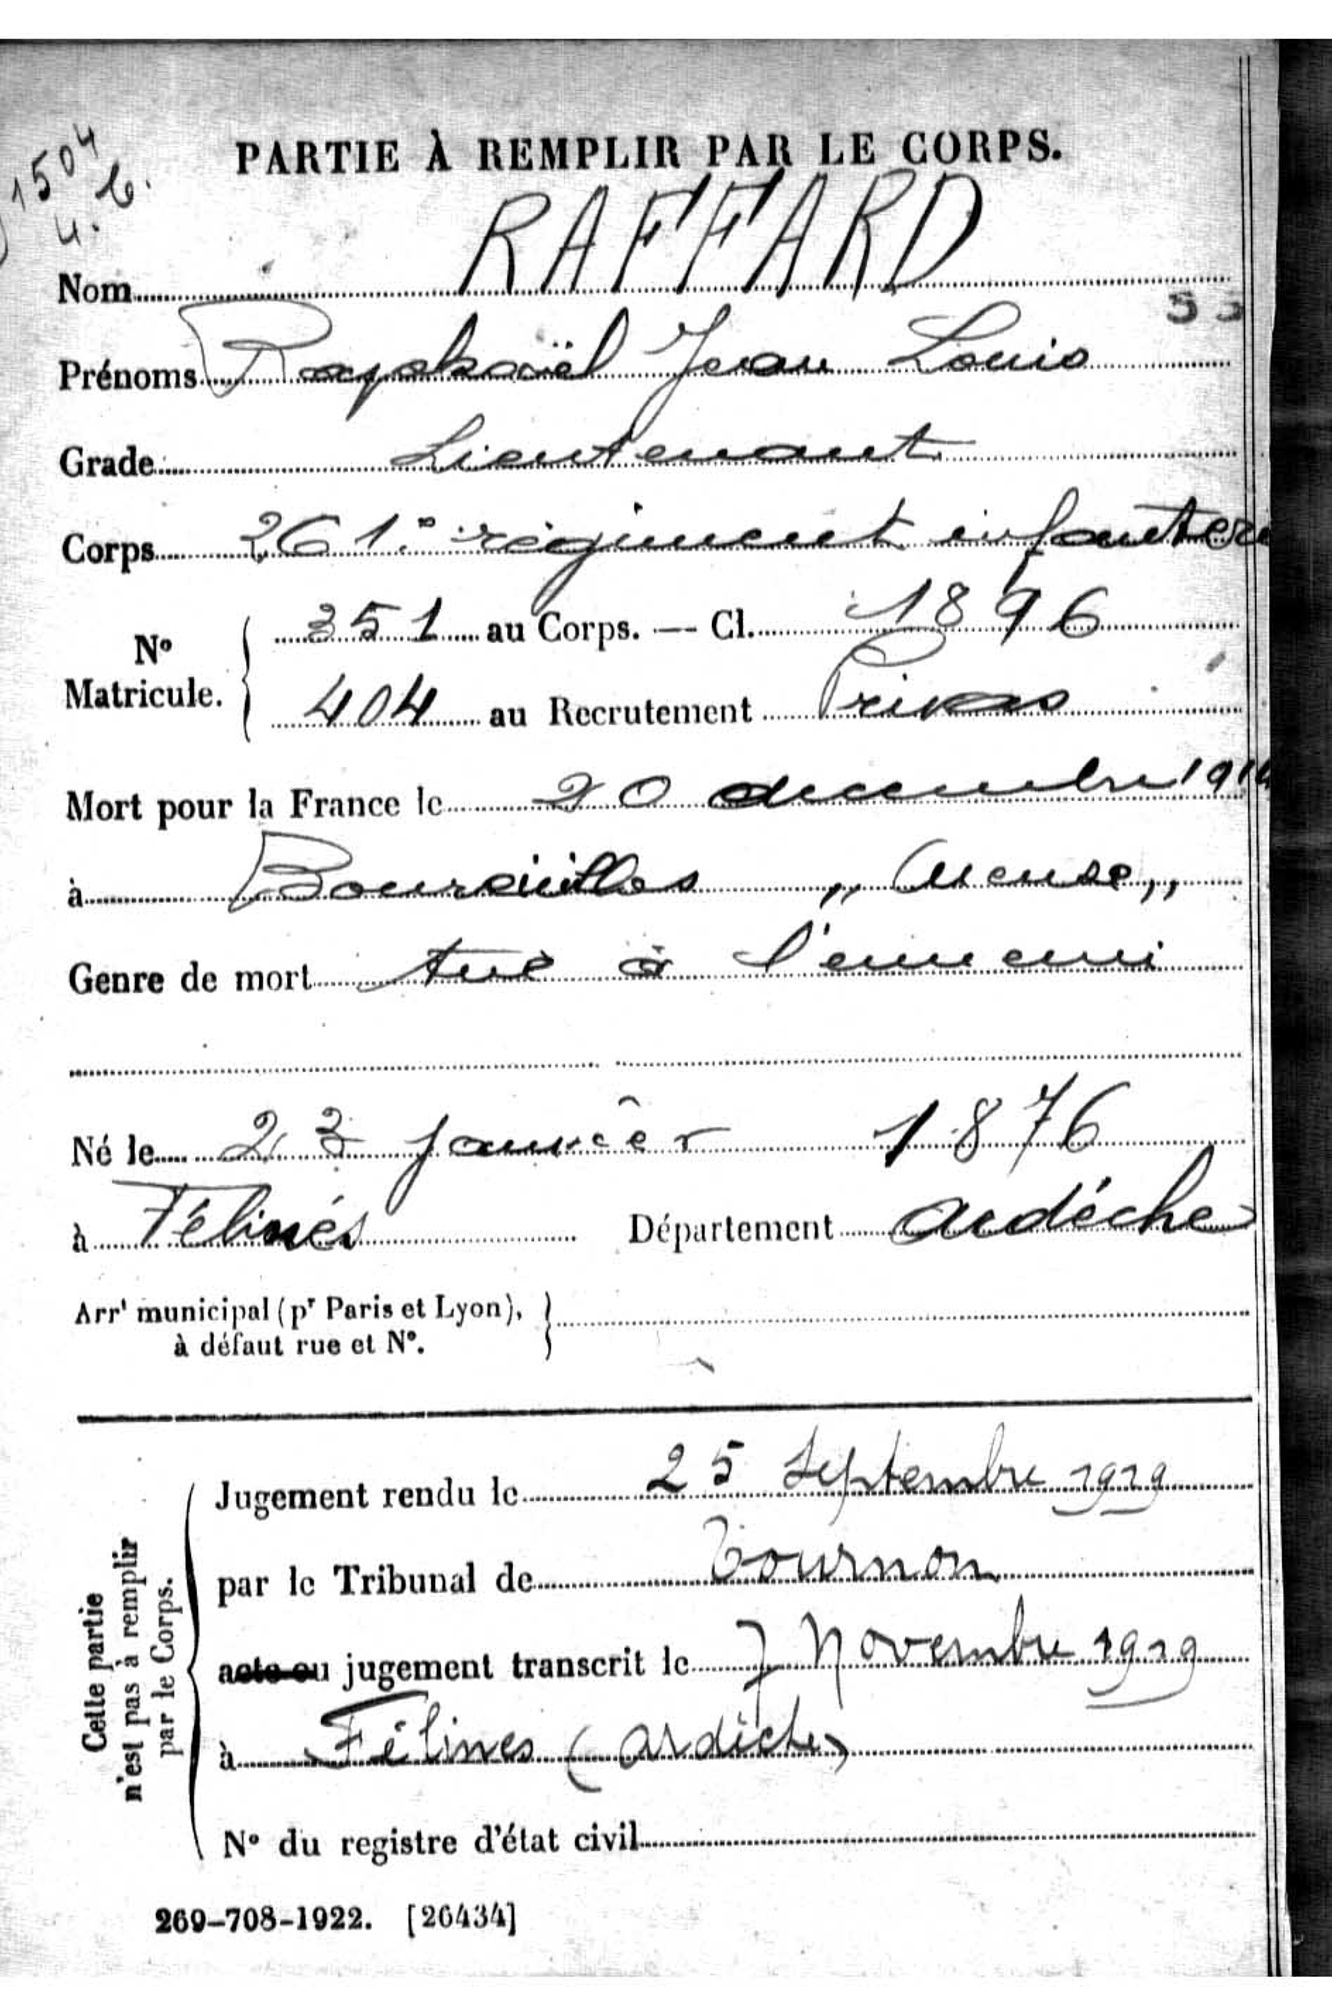 1504
PARTIE À REMPLIR PAR LE CORPS.
Nom RAFFARD
Prénoms Raphaël Jean Louis
Grade Lieutenant
Corps 261e régiment infanterie
Nº Matricule. 351 au Corps. — Cl. 1896
404 au Recrutement Privas
Mort pour la France le 20 decembre 1914
à Boureuilles ,, Meuse,,
Genre de mort tué à l'ennemi
Né le 23 janvier 1876
à Félines Département Ardéche
Arrt municipal (pr Paris et Lyon),
à défaut rue et Nº.
Cette partie
n'est pas à remplir
par le Corps.
Jugement rendu le 25 Septembre 1919
par le Tribunal de Tournon
acte ou jugement transcrit le 7 Novembre 1919
à Félines (Ardèche)
Nº du registre d'état civil
269-708-1922. [26434]